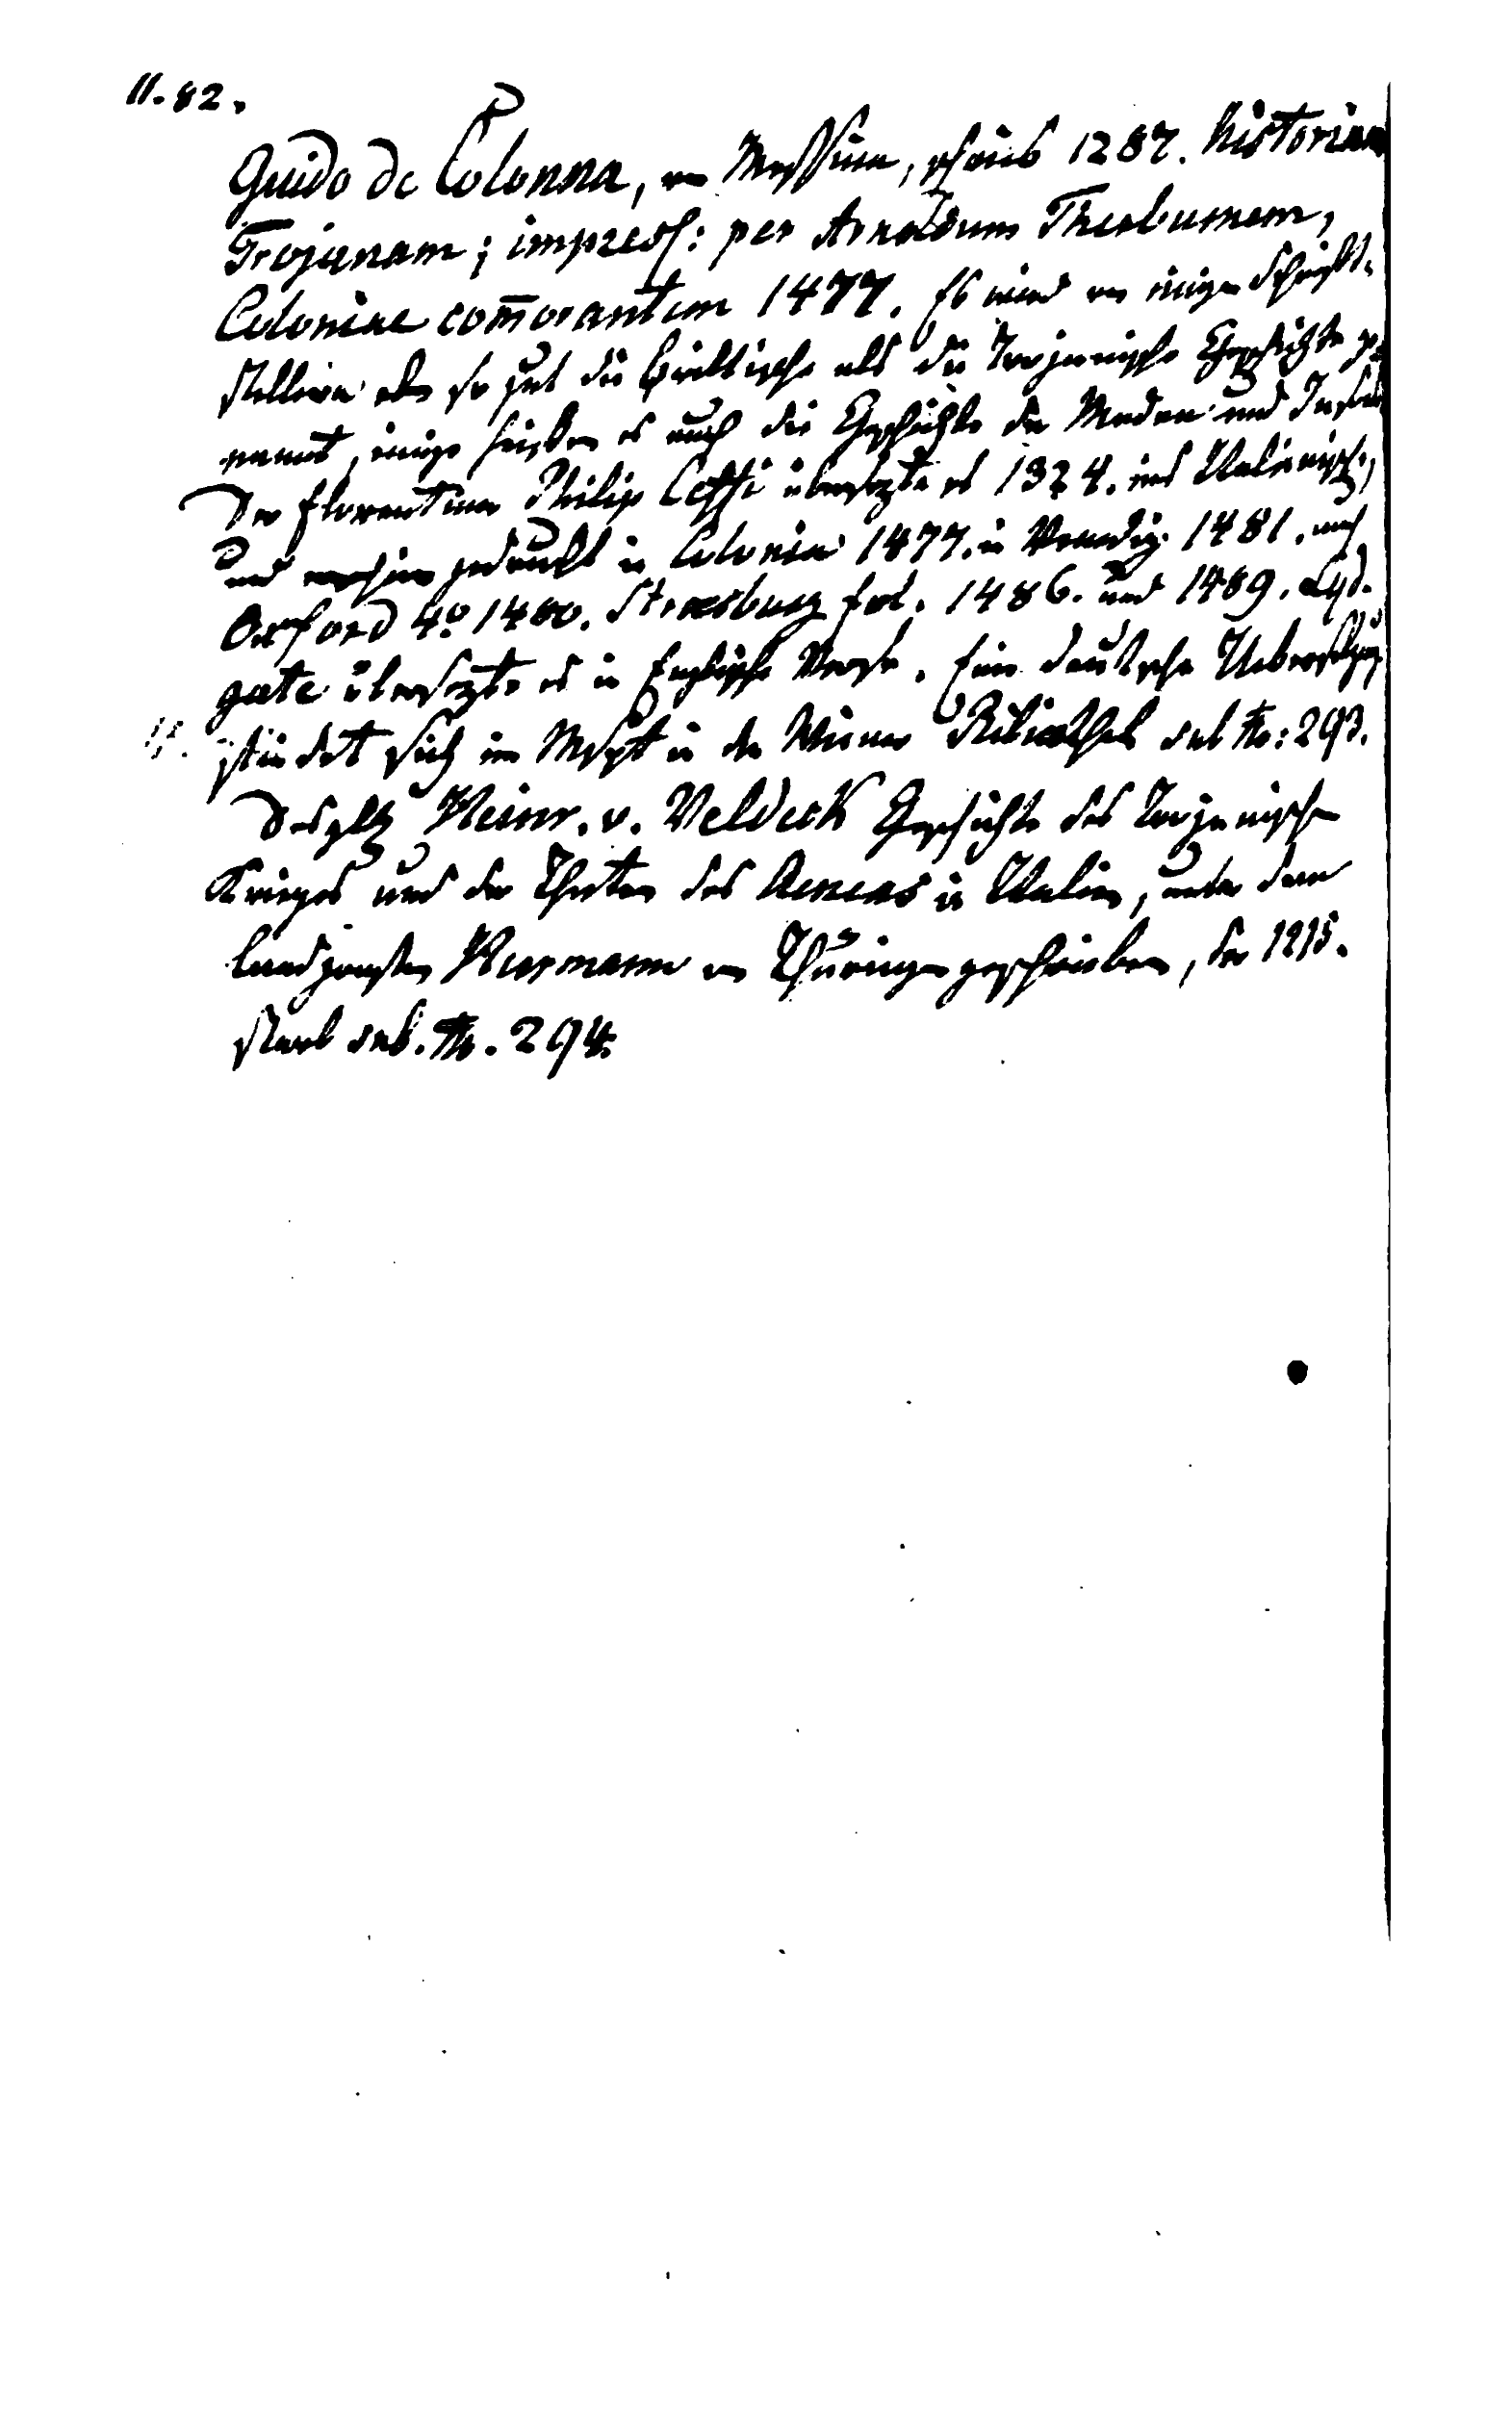 II. 82.
Guido de Colonna, von Messina, schrieb 1287. historiam
Trojanam; impress: per Arnoldum Therburnem,
Coloniae com̄orantem 1477. Es wird von einigen Schrift-
stellern eben so gut die die Trojanische Geschichte ge-
nannt, einige heißen es auch die Geschichte der Medea und Jason
Der Florentiner Philip Ceffi übersezte es 1324. ins Italienische,
und gedruckt in Colonia 1477. in Venedig 1481. auch
Oxford 4º 1480. Strasburg fol. 1486. und 1489. Lyd-
gate übersezte es in Englische Verse. Eine deutsche Uebersetzung
findet sich im Mspt in der Wiener Bibliothek sub No: 293.
desglch Heinr. v. Veldeck Geschichte des Trojanischen
Krieges und der Thaten des Aeneas in Italien, unter dem
Landgrafen Hermann von Thüringen geschrieben, der 1215.
starb sub. No. 294.